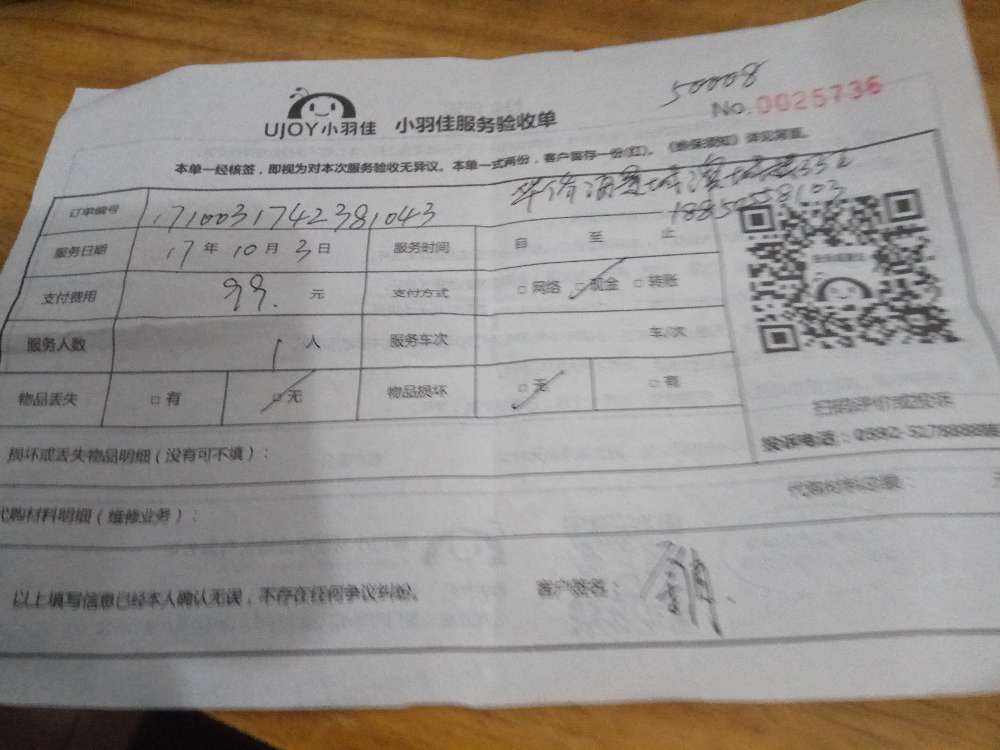 50008
UJOY小羽佳 小羽佳服务验收单 No.0025736
本单一经核签，即视为对本次服务验收无异议。本单一式两份，客户留存一份(红)。《维保须知》详见背面。
订单编号 171003174238 1043
18850581103
服务日期 17年10月3日 服务时间 自 至 止
支付费用 99.元 支付方式 □网络 □现金 □转账
服务人数 1人 服务车次 车/次
物品丢失 □有 □无 物品损坏 □无 □有
扫码评价或投诉
损坏或丢失物品明细（没有可不填）：
代购材料明细（维修业务）：
以上填写信息已经本人确认无误，不存在任何争议纠纷。 客户签名：